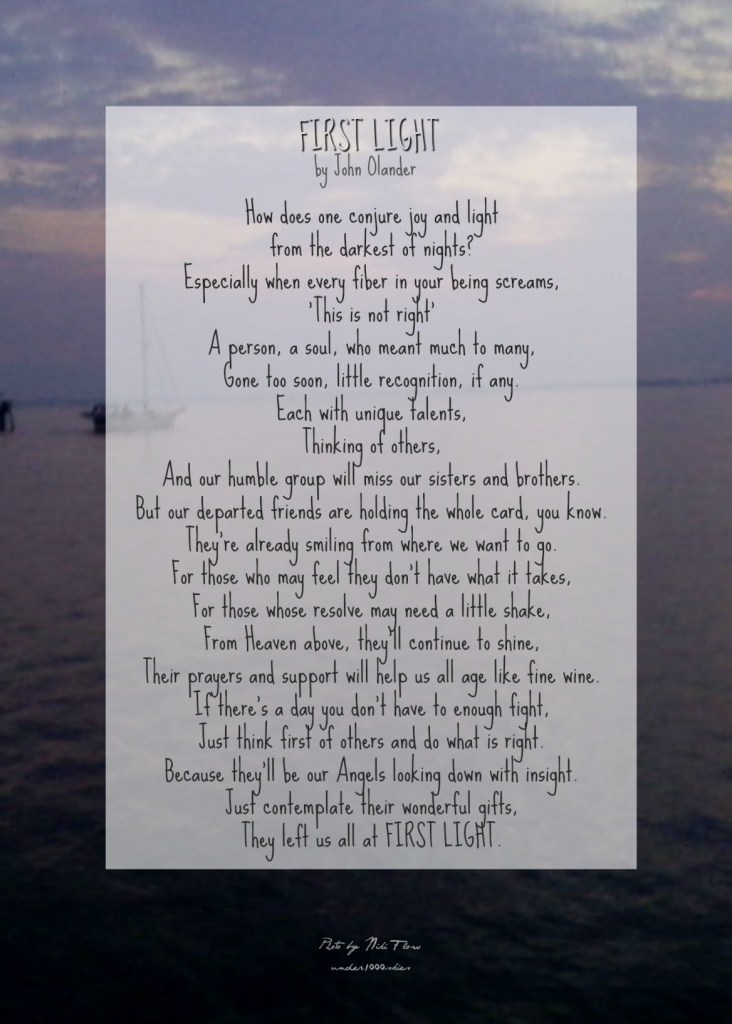 FIRST LIGHT
by John Olander
How does one conjure joy and light
from the darkest of nights?
Especially when every fiber in your being screams,
'This is not right'
A person, a soul, who meant much to many,
Gone too soon, little recognition, if any.
Each with unique talents,
Thinking of others,
And our humble group will miss our sisters and brothers.
But our departed friends are holding the whole card, you know.
They're already smiling from where we want to go.
For those who may feel they don't have what it takes,
For those whose resolve may need a little shake,
From Heaven above, they'll continue to shine,
Their prayers and support will help us all age like fine wine.
If there's a day you don't have to enough fight,
Just think first of others and do what is right.
Because they'll be our Angels looking down with insight.
Just contemplate their wonderful gifts,
They left us all at FIRST LIGHT.
Photo by Niki Flow
under1000skies